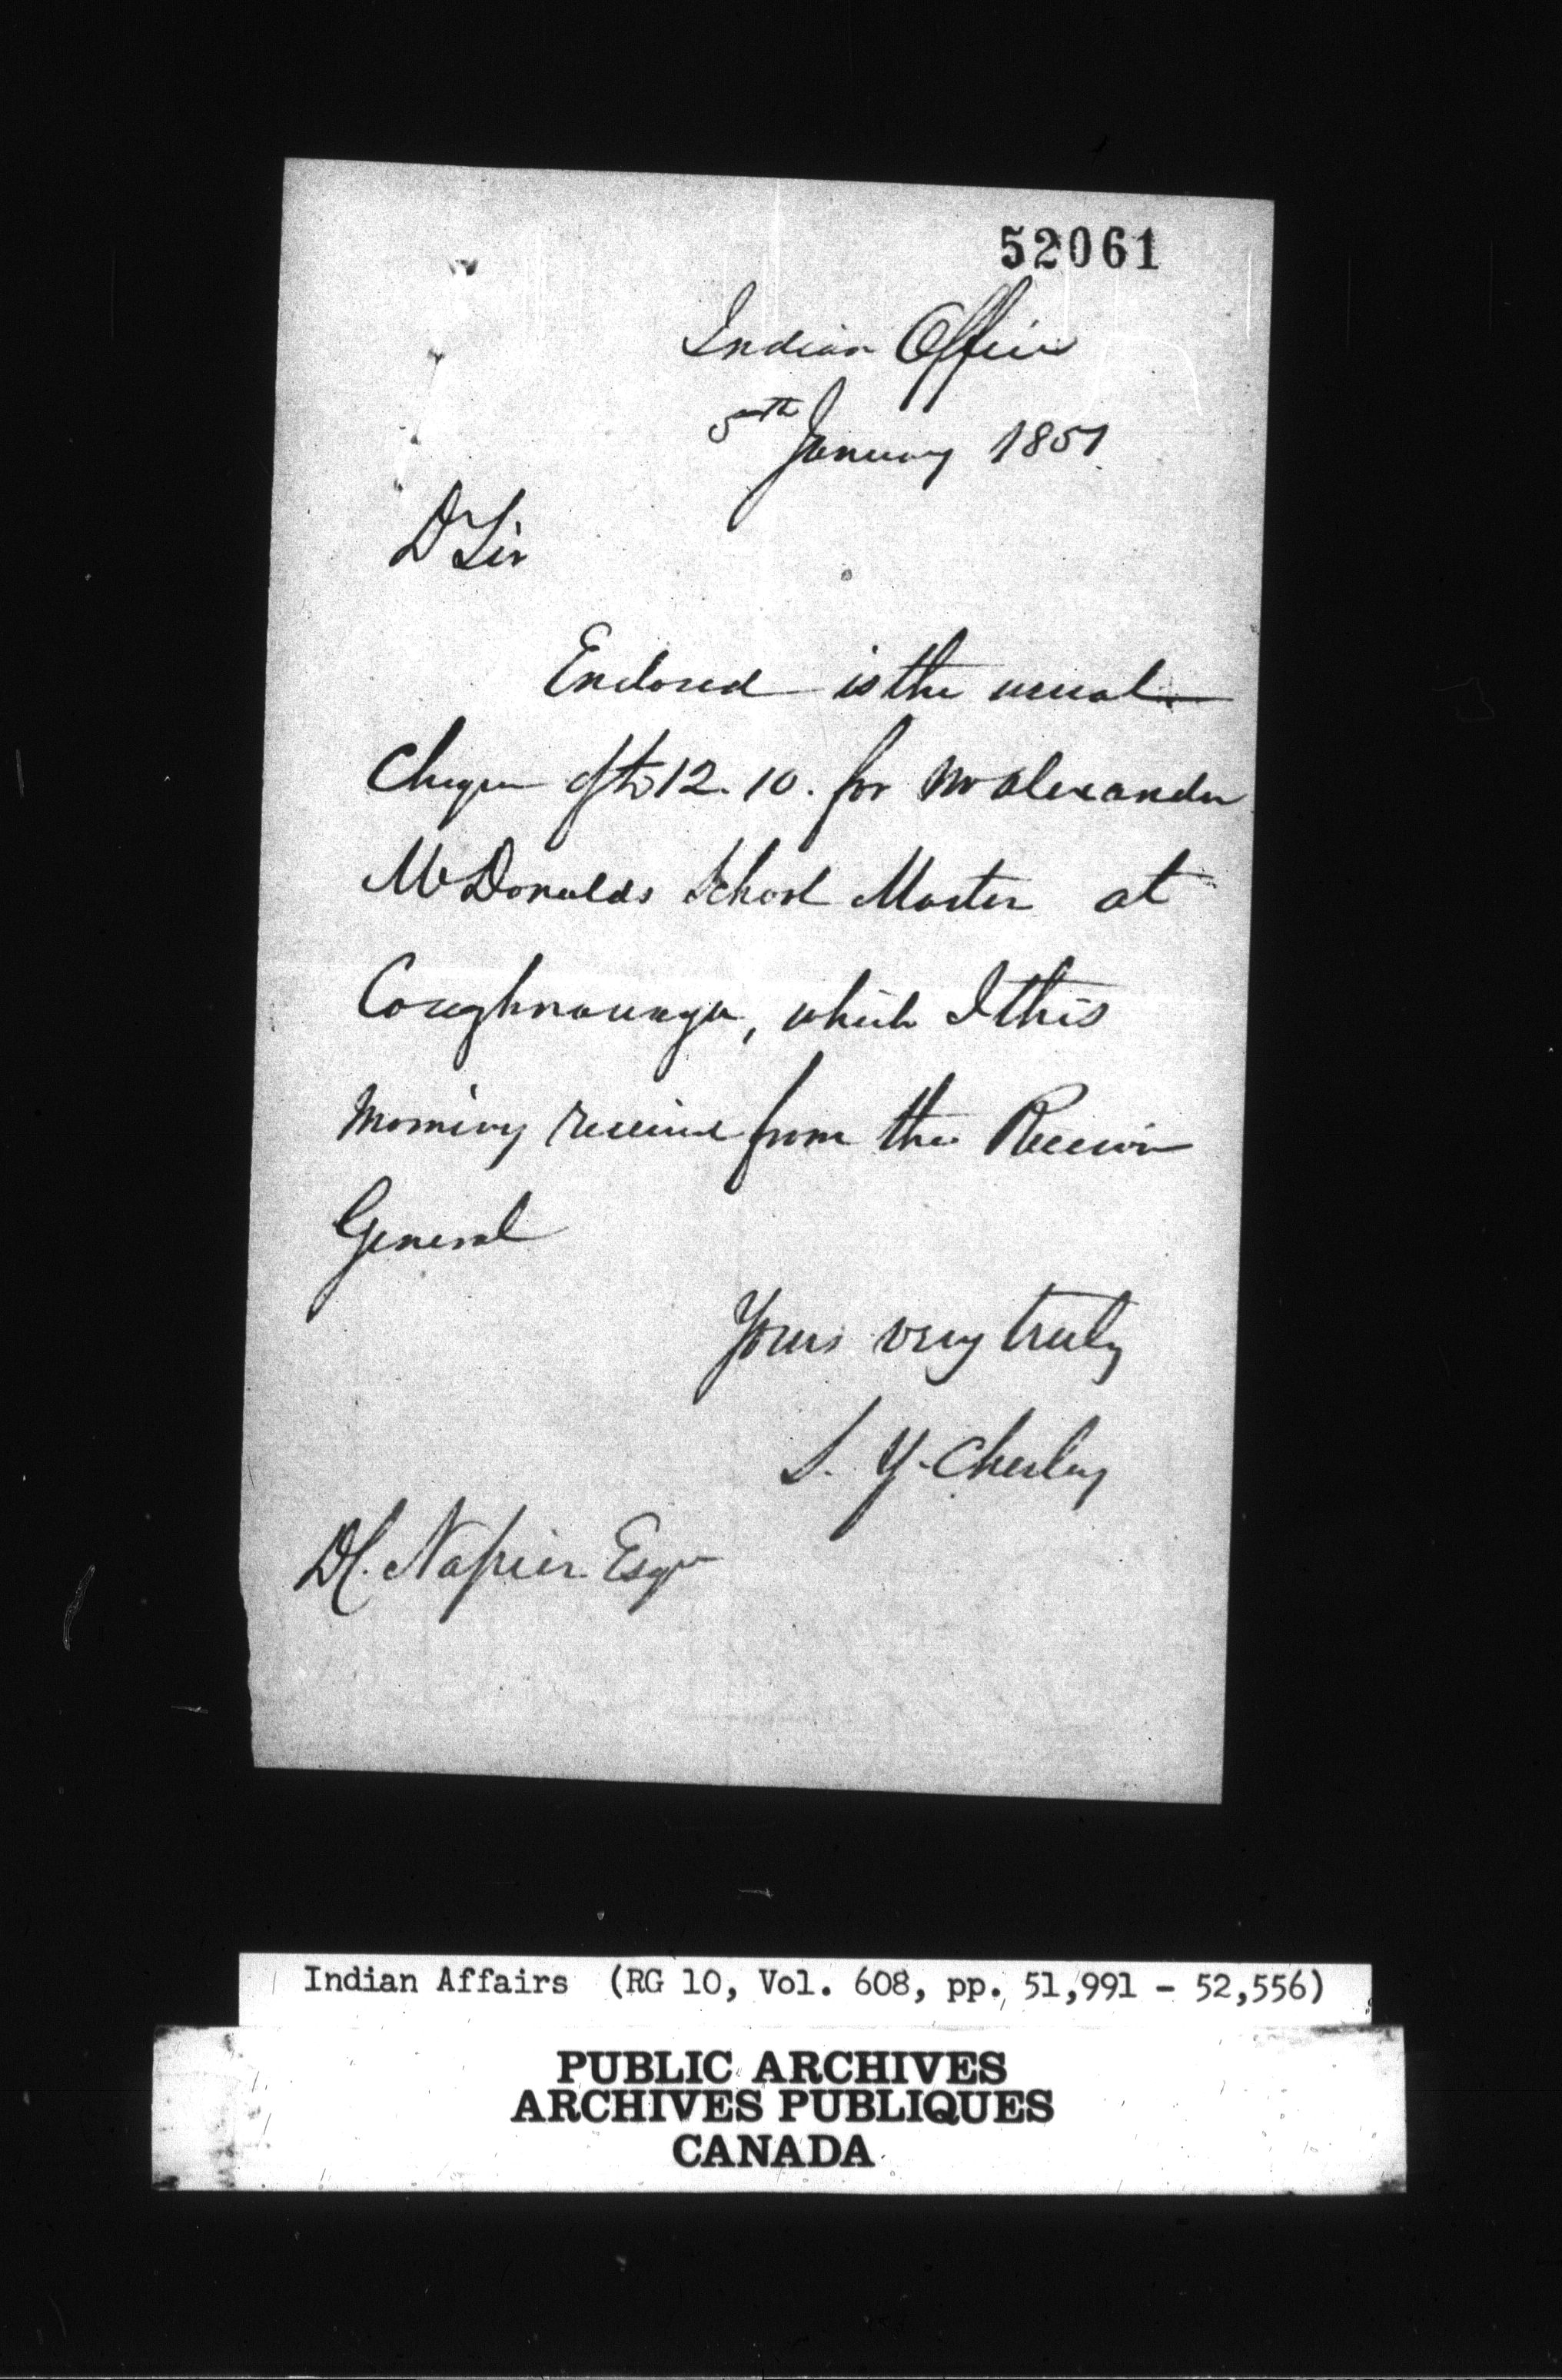 52061
Indian Office
5th January 1851
D Sir
Enclosed is the usual
Cheque of £12.10. for Mr Alexander
McDonalds School Master at
Coughnawaga, which I this
morning received from the Receiver
General
Yours very truly
S. Y. Chesley
D C. Napier Esqr
Indian Affairs (RG 10, Vol. 608, pp. 51,991 - 52,556)
PUBLIC ARCHIVES
ARCHIVES PUBLIQUES
CANADA